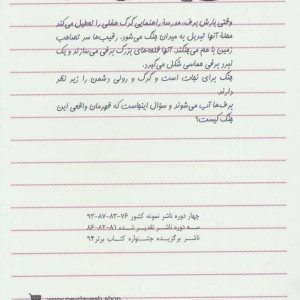 وقتی بارش برف، مدرسهٔ راهنمایی گرگ هفلی را تعطیل می‌کند
محلهٔ آنها تبدیل به میدان جنگ می‌شود. رقیب‌ها سر تصاحب
زمین با هم می‌جنگند. آنها قلعه‌های بزرگ برفی می‌سازند و یک
نبرد برفی حماسی شکل می‌گیرد.
جنگ برای نجات است و گرگ و رولی دشمن را زیر نظر
دارند.
برف‌ها آب می‌شوند و سؤال اینجاست که قهرمان واقعی این
جنگ کیست؟
چهار دوره ناشر نمونه کشور ۷۶-۸۳-۸۷-۹۳
سه دوره ناشر تقدیر شده ۸۱-۸۲-۸۶
ناشر برگزیده جشنواره کتاب برتر ۹۴